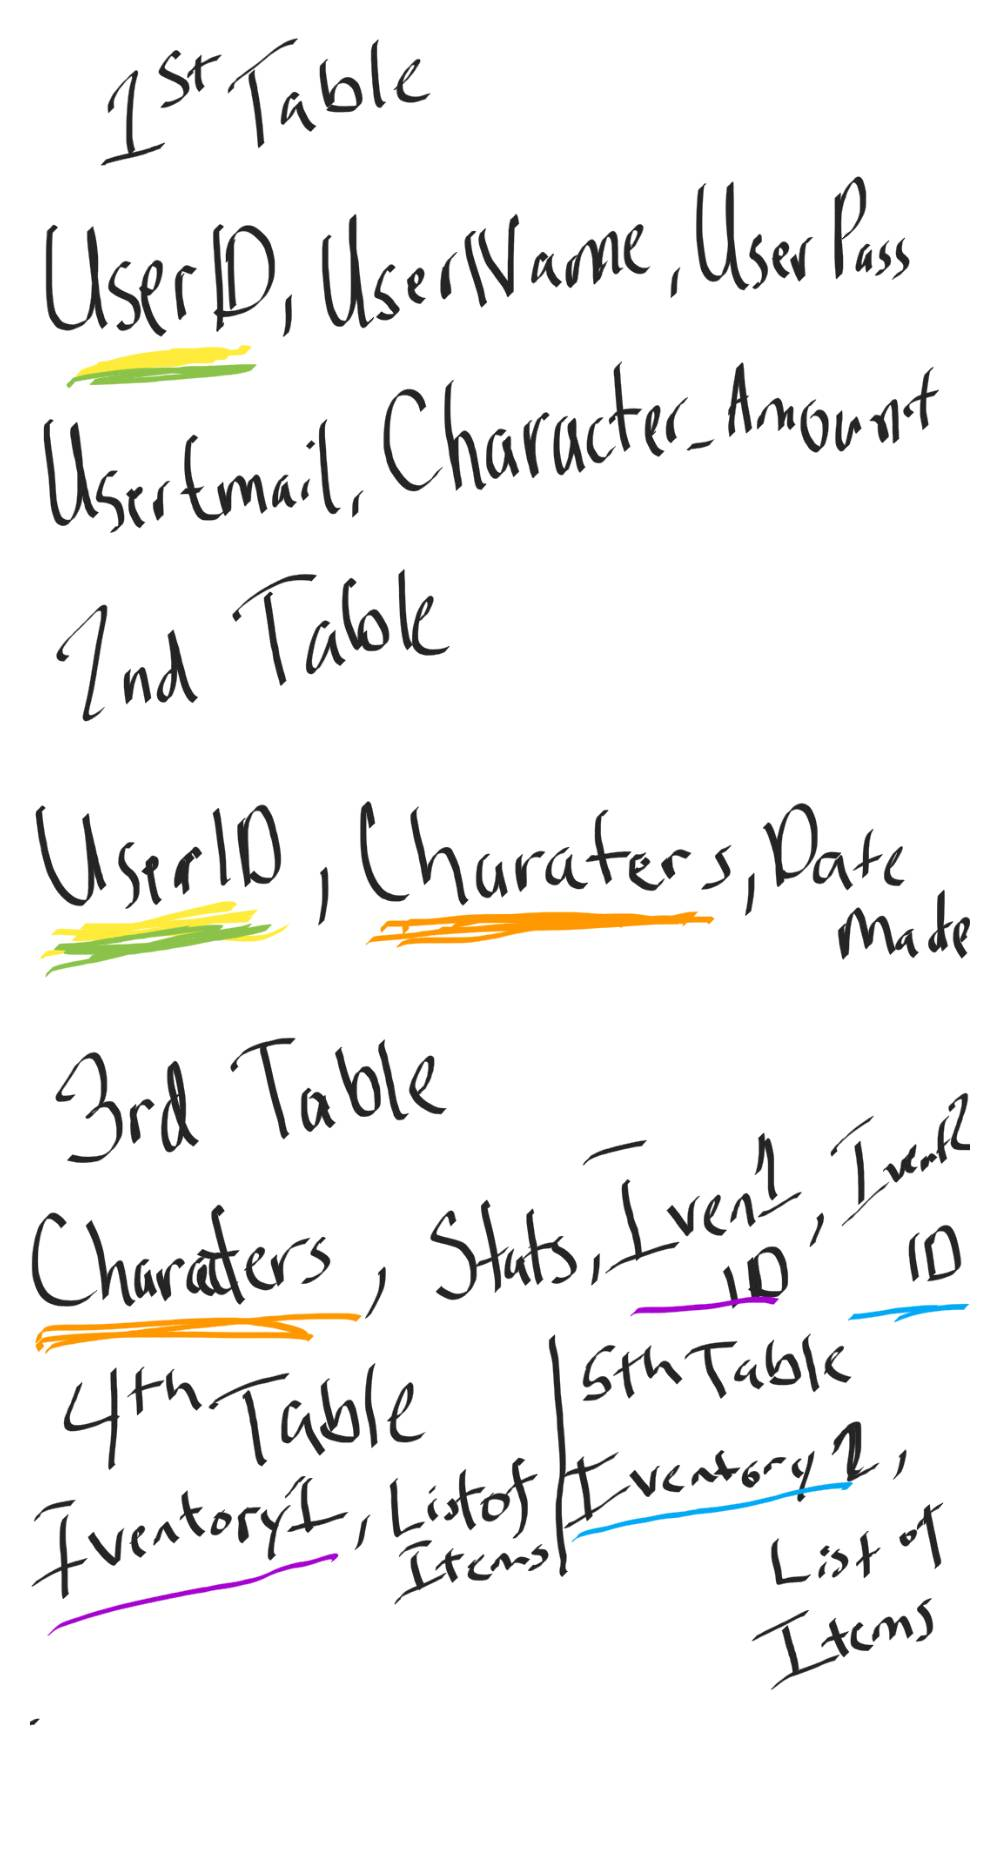 1st Table
UserID, UserName, UserPass
UserEmail, Character_Amount
2nd Table
UserID, Charaters, Date
Made
3rd Table
Charaters, Stats, Iven1, Ivent2
ID ID
4th Table
Iventory1, List of
Items
5th Table
Iventory2,
List of
Items